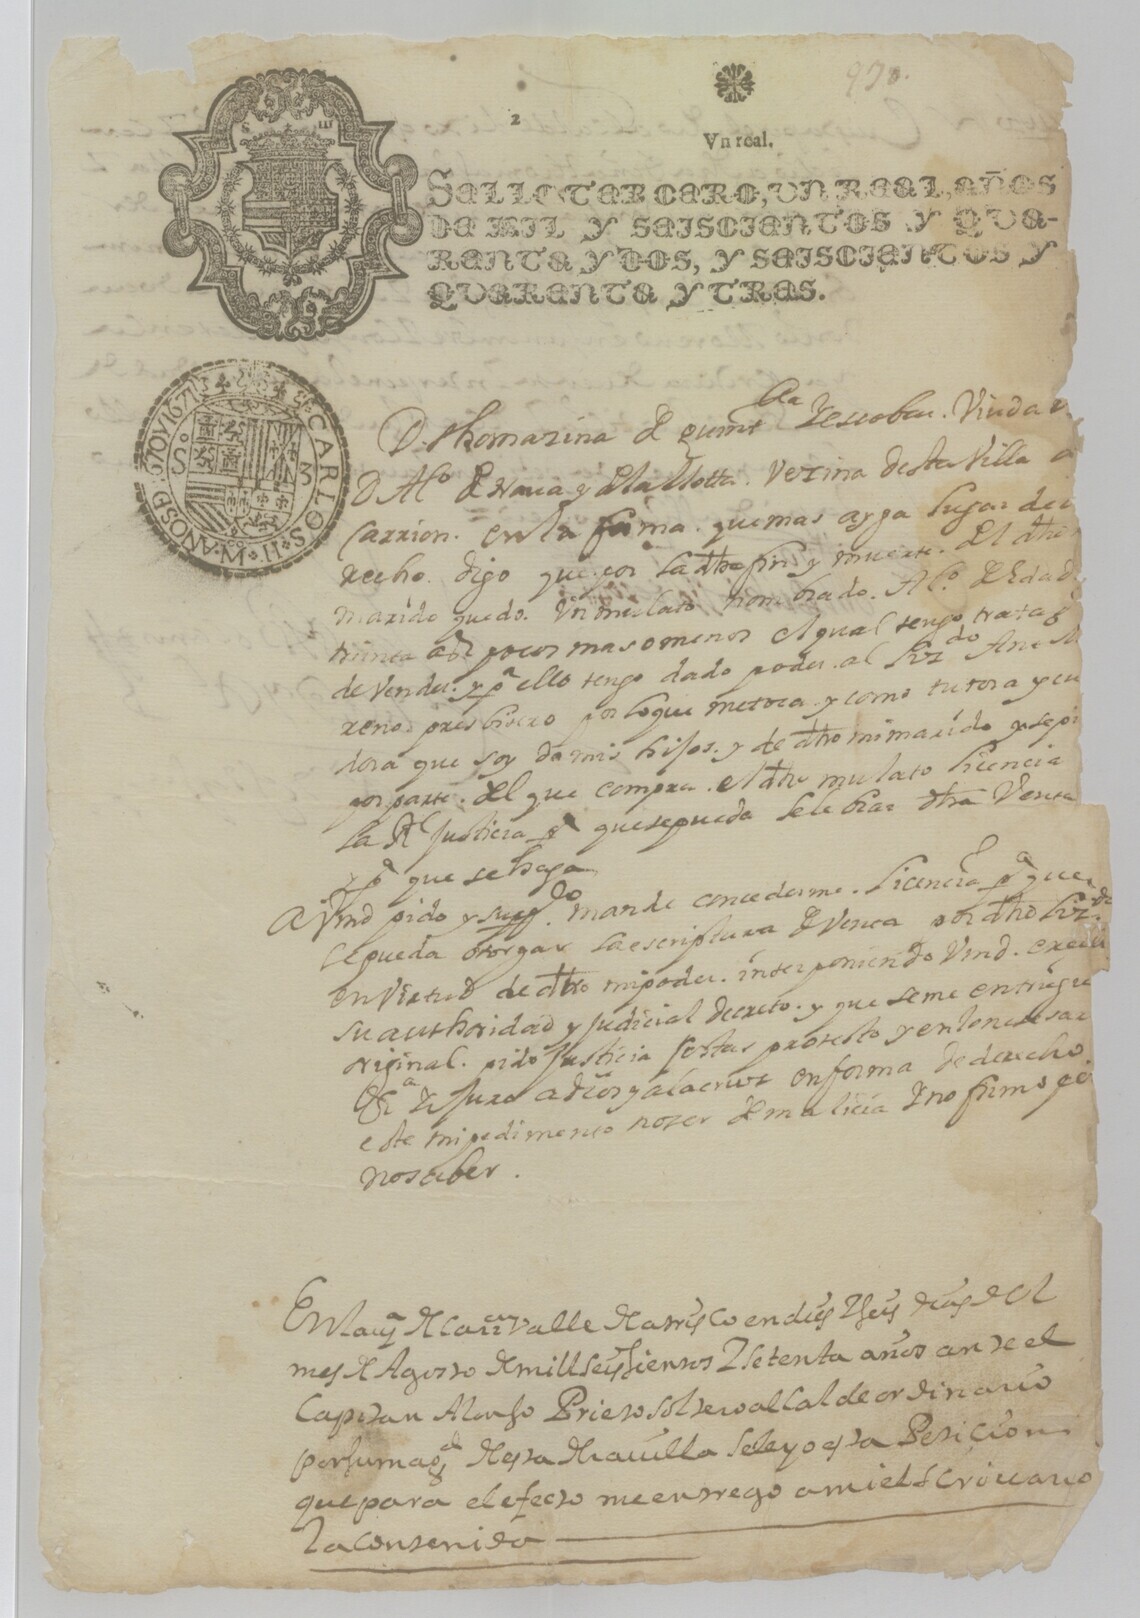 970.
2
Vn real.
SELLO TERCERO, VN REAL, AÑOS
DE MIL Y SEISCIENTOS Y QVA-
RENTA Y DOS, Y SEISCIENTOS Y
QVARENTA Y TRES.
CARLOS II
D. thomazina de quint.na Yescobar. Viuda
D Alo de Naua y de la Motta. Vezina desta Villa
Carrion. en la forma. que mas ayga lugar de
recho. digo que por la dha fin y muerte. del dho
marido quedo. Vn mulato nombrado. Alo. de Edad
treinta as pocos mas o menos el qual tengo tratado
de Vender. y pa ello tengo dado poder. al Lizdo Anto M
reno presbitero por loque metoca. y como tutora y cu
dora que soy de mis hijos. y de dho mi marido y sepi
por parte. del que compra. el dho mulato licencia
la Rl Justicia pa que se pueda selebrar dha Venta
y pa que se haga
A Vmd pido y suppco. mande concederme. licencia pa que
se pueda otorgar la escriptura de Venta por dho Lizdo
en Virtud de dho mi poder. interponiendo Vmd. en ella
su authoridad y judicial decreto. y que se me entregue
original. pido Justicia costas protesto y en lo nesesar
Ofa & Juro a dios y a la cruz en forma de derecho.
este mi pedimento no ser de malicia & no firmo po
no saber.
En la Va de Carrn Valle de atrisco en dies & seis dias del
mes de Agosto de mill seissientos & setenta años ante el
Capitan Alonso Prieto soltero alcalde ordinario
por su magd desta dha uilla se leyo esta Peticion
que para el efecto me entrego a mi el escriuano
La contenida